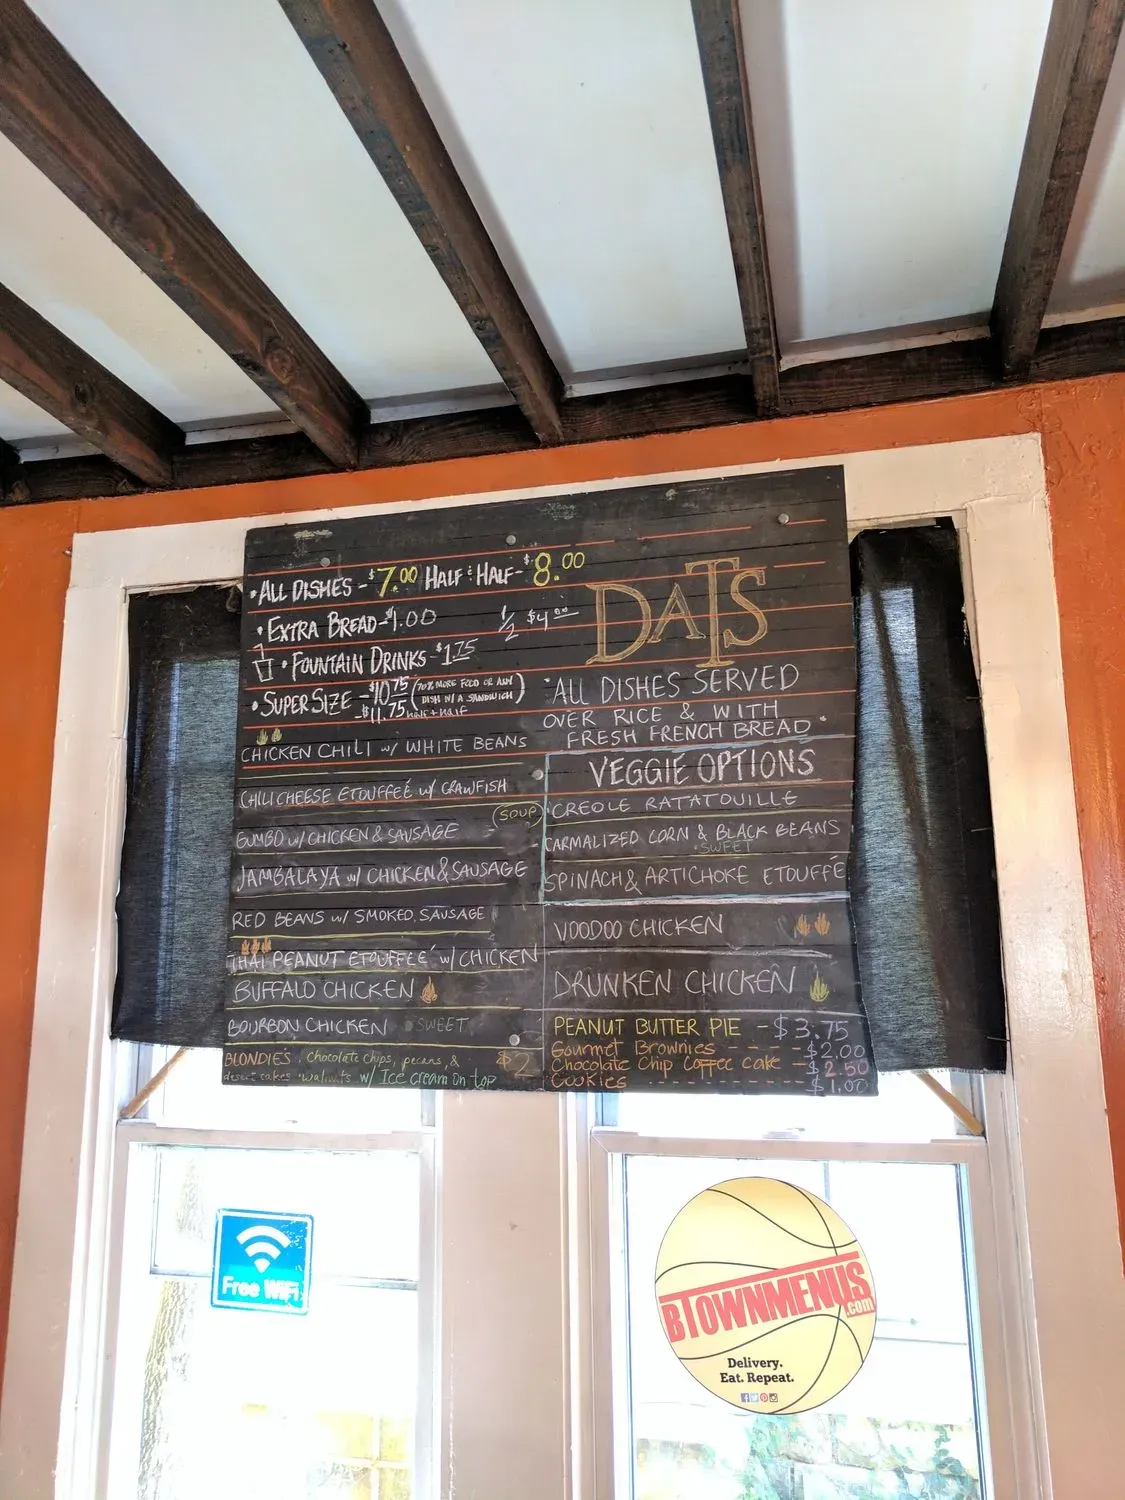 • ALL DISHES - $7.00 HALF & HALF - $8.00
• EXTRA BREAD - $1.00 1/2 $4.00
• FOUNTAIN DRINKS - $1.75
• SUPER SIZE - $10.75 (70% MORE FOOD OR ANY
DISH W/ A SANDWICH)
- $11.75 HALF + HALF
CHICKEN CHILI w/ WHITE BEANS
CHILI CHEESE ETOUFFEÉ w/ CRAWFISH
(SOUP)
GUMBO w/ CHICKEN & SAUSAGE
JAMBALAYA w/ CHICKEN & SAUSAGE
RED BEANS w/ SMOKED SAUSAGE
THAI PEANUT ETOUFFEÉ w/ CHICKEN
BUFFALO CHICKEN
BOURBON CHICKEN • SWEET
BLONDIES, chocolate chips, pecans, & $2
desert cakes walnuts w/ Ice cream on top
DATS
• ALL DISHES SERVED
OVER RICE & WITH
FRESH FRENCH BREAD •
VEGGIE OPTIONS
CREOLE RATATOUILLE
CARMALIZED CORN & BLACK BEANS
• SWEET
SPINACH & ARTICHOKE ETOUFFÉ
VOODOO CHICKEN
DRUNKEN CHICKEN
PEANUT BUTTER PIE - $3.75
Gourmet Brownies - - - - $2.00
Chocolate Chip Coffee cake - $2.50
Cookies - - - - - - - - $1.00
Free WiFi
BTOWNMENUS
.com
Delivery.
Eat. Repeat.